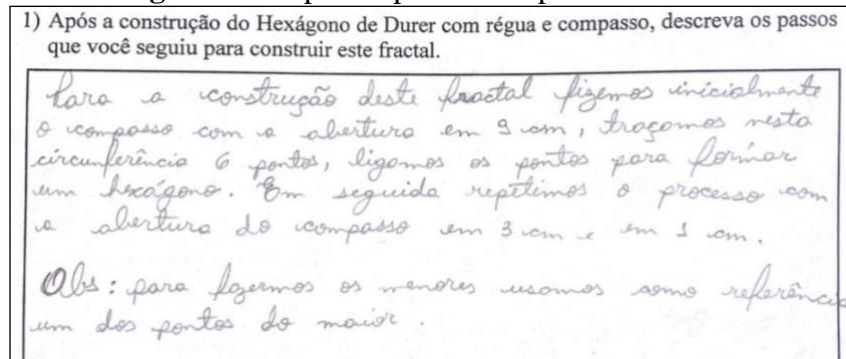 1) Após a construção do Hexágono de Durer com régua e compasso, descreva os passos
que você seguiu para construir este fractal.
Para a construção deste fractal fizemos inicialmente
o compasso com a abertura em 9 cm, traçamos nesta
circunferência 6 pontos, ligamos os pontos para formar
um hexágono. Em seguida repitimos o processo com
a abertura do compasso em 3 cm e em 1 cm.
Obs: para fazermos os menores usamos como referência
um dos pontos do maior.